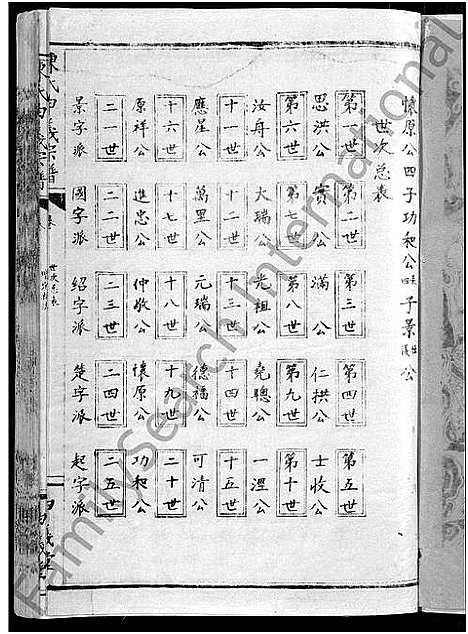 懷原公四子功和公四子景公
世次总表
第一世 第二世 第三世 第四世 第五世
思洪公 實公 滿公 仁拱公 士收公
第六世 第七世 第八世 第九世 第十世
汝舟公 大瑞公 光祖公 堯聰公 一湮公
十一世 十二世 十三世 十四世 十五世
應星公 萬里公 元瑞公 德福公 可清公
十六世 十七世 十八世 十九世 二十世
原祥公 進忠公 仲敬公 懷原公 功和公
二一世 二二世 二三世 二四世 二五世
景字派 國字派 紹字派 楚字派 起字派
陳氏宗譜
FamilySearch International